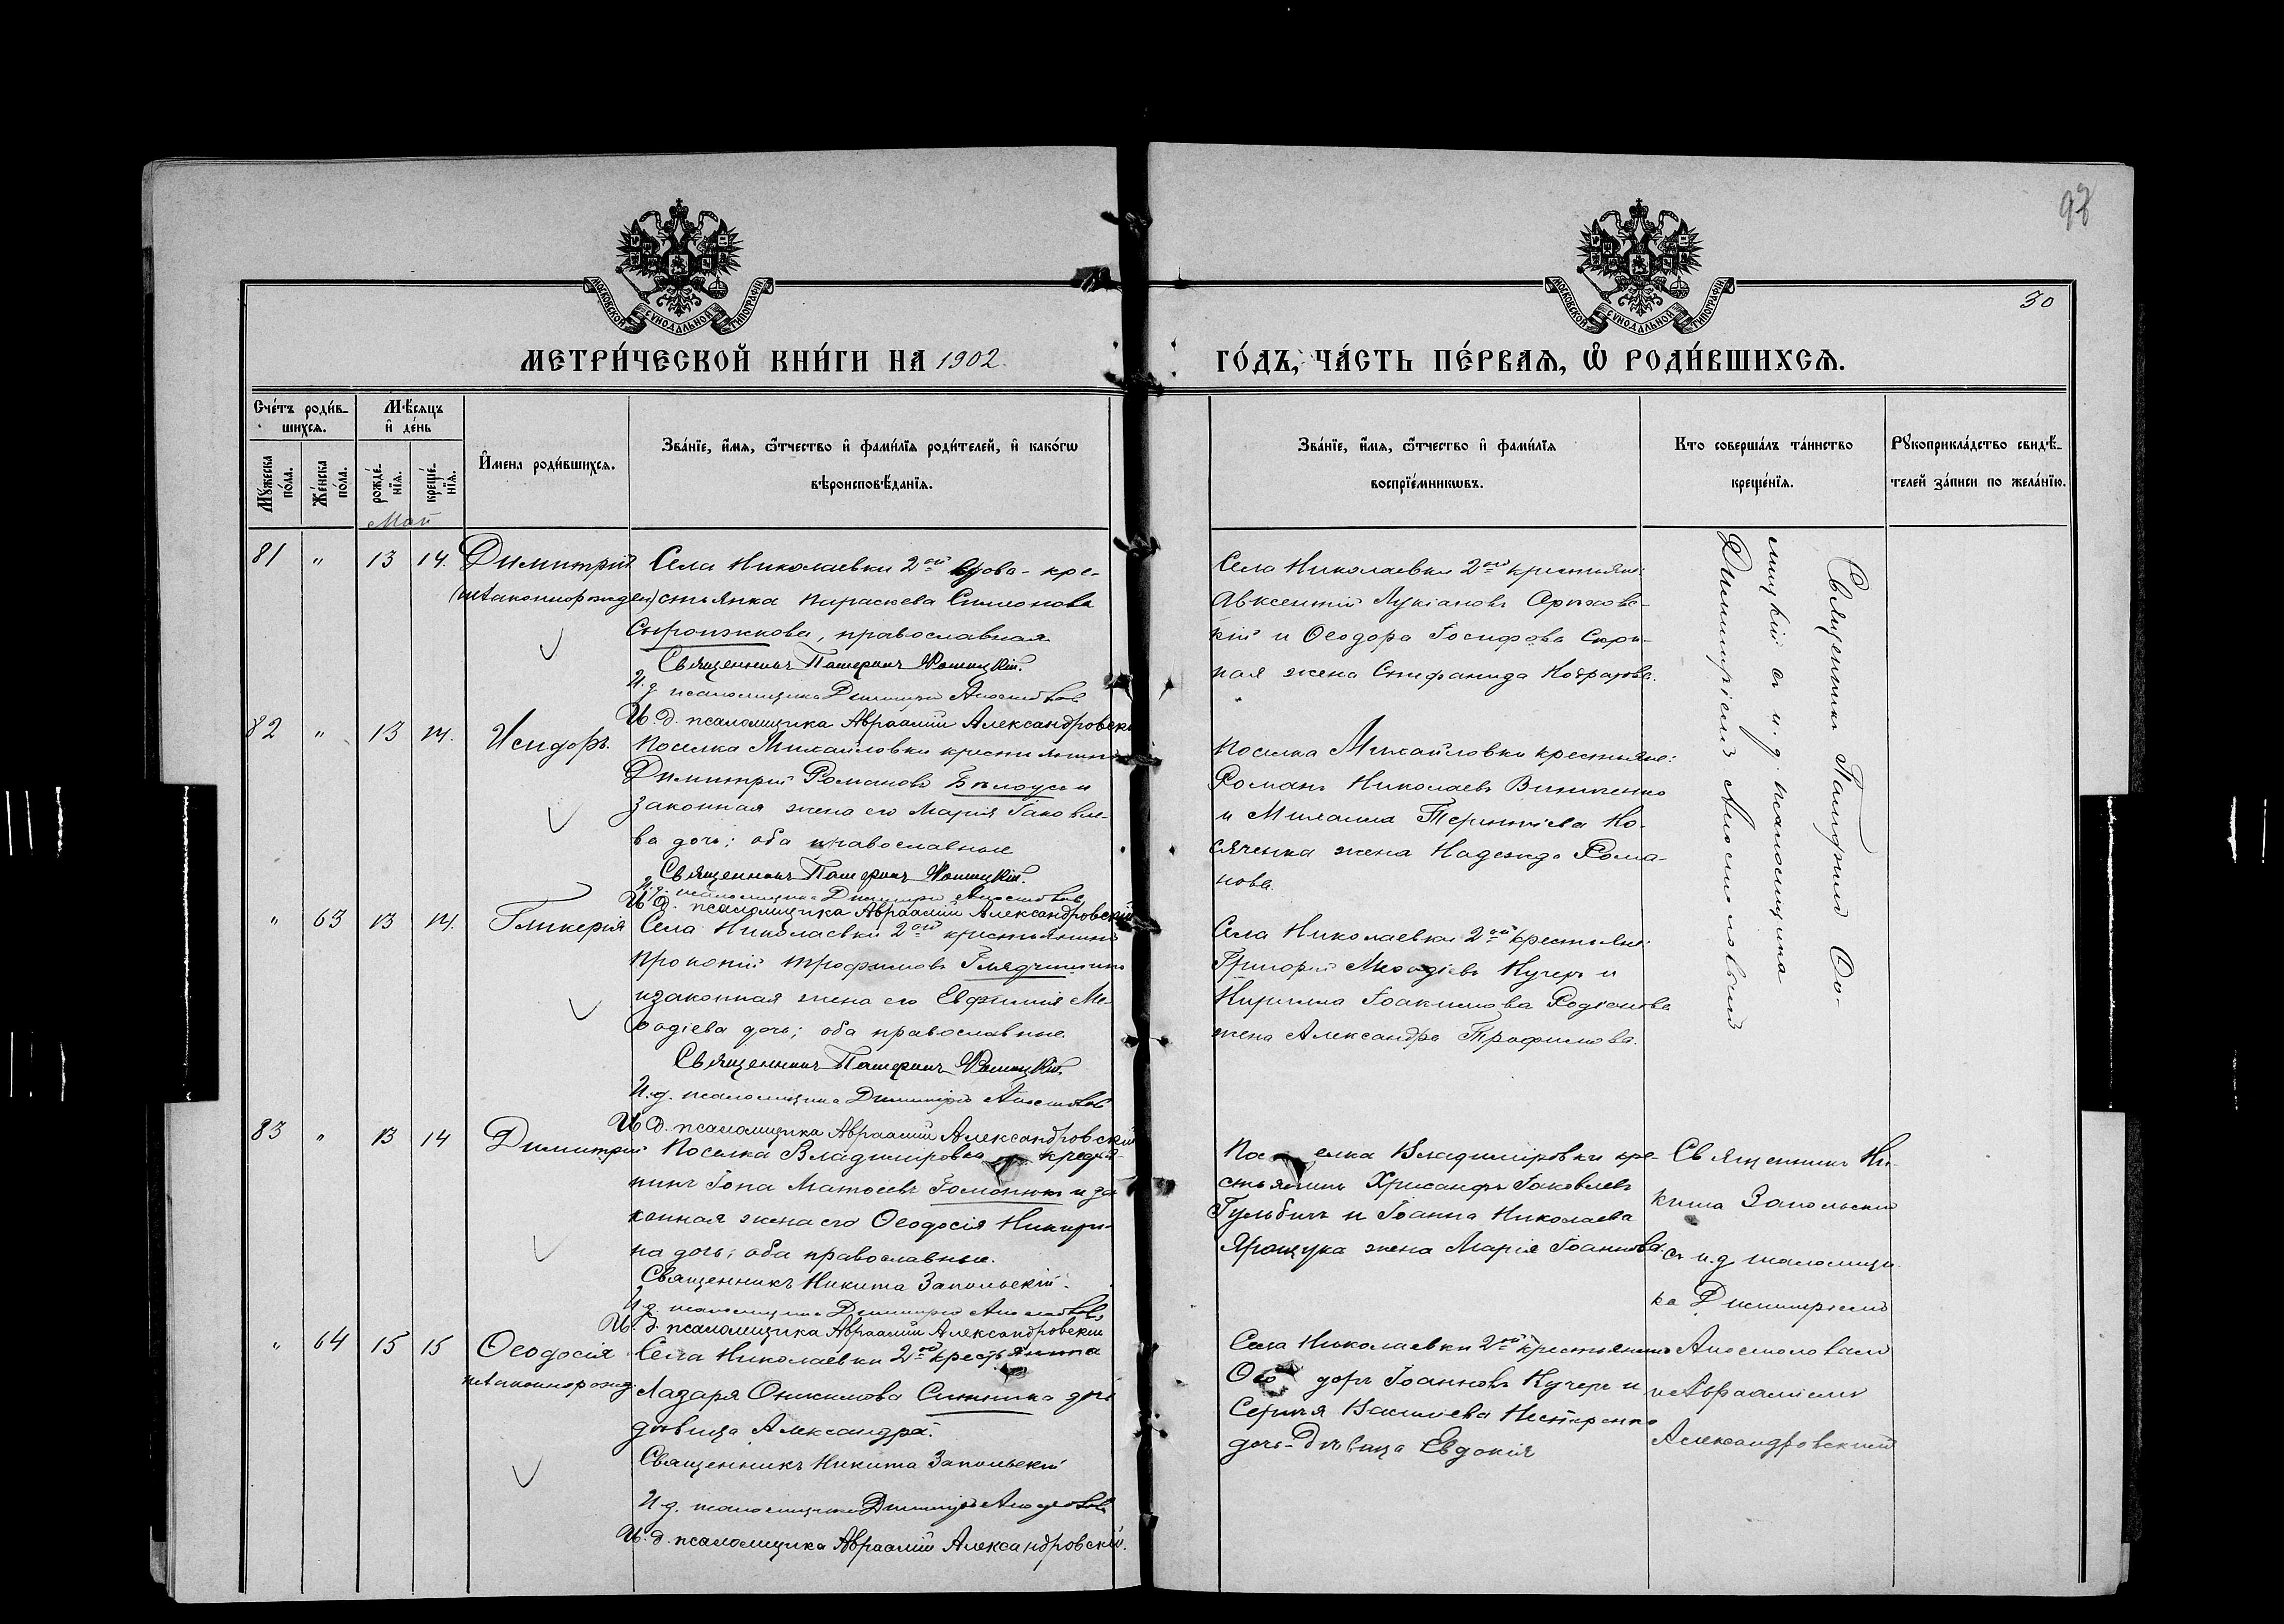 98
МОСКОВСКОЙ СѴНОДАЛЬНОЙ ТИПОГРАФІИ
МОСКОВСКОЙ СѴНОДАЛЬНОЙ ТИПОГРАФІИ
30
МЕТРИ́ЧЕСКОЙ КНИ́ГИ НА 1902
ГО́ДЪ, ЧА́СТЬ ПЕ́РВАѦ, Ѡ РОДИ́ВШИХСѦ.
Сче́тъ роди́в-
шихсѧ.
Мꙋ́жеска по́ла.
Же́нска по́ла.
Мѣ́сѧцъ
и҆ де́нь
рожде́нїѧ.
креще́нїѧ.
И҆мена̀ роди́вшихсѧ.
Зва́нїе, и҆́мѧ, ѻ҆́тчество и҆ фами́лїѧ роди́телей, и҆ како́гѡ
вѣроисповѣ́данїѧ.
Зва́нїе, и҆́мѧ, ѻ҆́тчество и҆ фами́лїѧ
воспрїе́мникѡвъ.
Кто̀ соверша́лъ та́инство
креще́нїѧ.
Рꙋкоприкла́дство свидѣ́-
телей за́писи по жела́нїю.
Май
81 " 13 14. Димитрій
(незаконнорожден)
Села Николаевки 2ой вдова - кре-
стьянка Параскева Симеонова
православная
Священникъ
И. д. псаломщика Димитрій Апостоловъ
И. д. псаломщика Авраамій Александровскій
Села Николаевки 2ой крестьяне:
Авксентій Лукіановъ
кій и Ѳеодора Іосифова
ная жена
Священникъ
с и. д. псаломщика
Димитріемъ Апостоловымъ
82 " 13 14. Исидоръ.
Поселка Михайловки крестьянинъ
Димитрій Романовъ Бѣлоусъ и
законная жена его Марія Іаковле-
ва дочь; оба православные
Священникъ
И. д. псаломщика Димитрій Апостоловъ
И. д. псаломщика Авраамій Александровскій
Поселка Михайловки крестьяне:
Романъ Николаевъ Винниченко
и Михаила Терентіева Ко-
сяченка жена Надежда Рома-
нова.
" 63 13 14. Гликерія
Села Николаевки 2ой крестьянинъ
Прокопій Трофимовъ
и законная жена его Евфимія Ме-
ѳодіева дочь; оба православные
Священникъ
И. д. псаломщика Димитрій Апостоловъ
И. д. псаломщика Авраамій Александровскій
Села Николаевки 2ой крестьяне:
Григорій Меѳодіевъ Кучеръ и
Кирилла Іоакимова Родіонова
жена Александра Трофимова.
83 " 13 14 Димитрій
Поселка Владимировки крестья-
нинъ Іона Матѳеевъ и за
конная жена его Ѳеодосія
на дочь; оба православные.
Священникъ Никита Запольскій.
И. д. псаломщика Димитрій Апостоловъ
И. д. псаломщика Авраамій Александровскій
Поселка Владиміровки кре-
стьянинъ Хрисанфъ Іаковлевъ
Гульбичъ и Іоанна Николаева
Ярощука жена Марія Іоаннова.
Священникъ Ни-
кита Запольскій
съ и. д. псаломщи
ка Димитріемъ
Апостоловымъ
и Авраамiемъ
Александровскимъ
" 64 15 15 Ѳеодосія
незаконнорожд.
Села Николаевки 2ой крестьянина
Лазаря Онисимова дочь
дѣвица Александра.
Священникъ Никита Запольскій
И. д. псаломщика Димитрій Апостоловъ
И. д. псаломщика Авраамій Александровскій.
Села Николаевки 2ой крестьянинъ
Ѳеодоръ Іоанновъ Кучеръ и
Сергія Василіева Нестеренко
дочь - дѣвица Евдокія